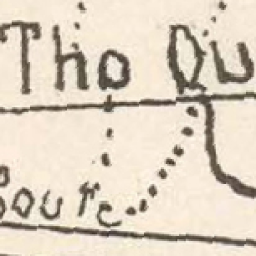 Tho Qu
Sourc